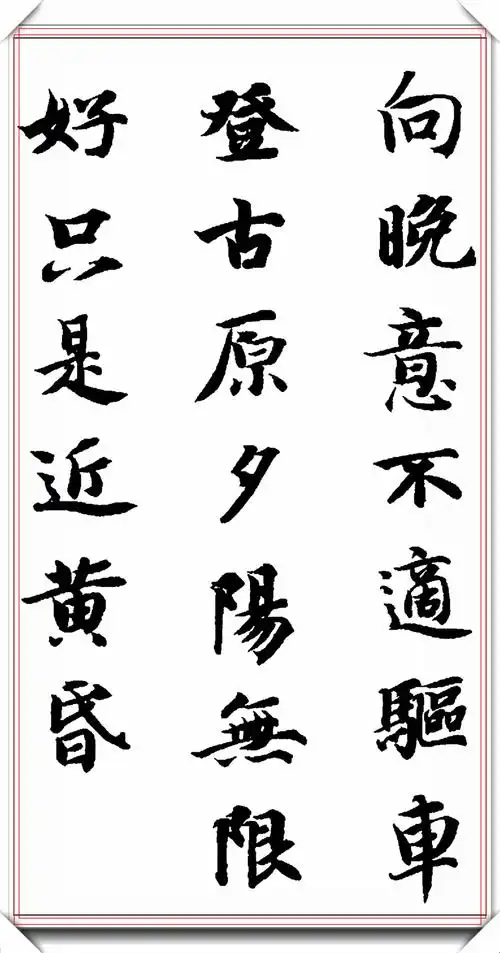 向晚意不適驅車
登古原夕陽無限
好只是近黄昏